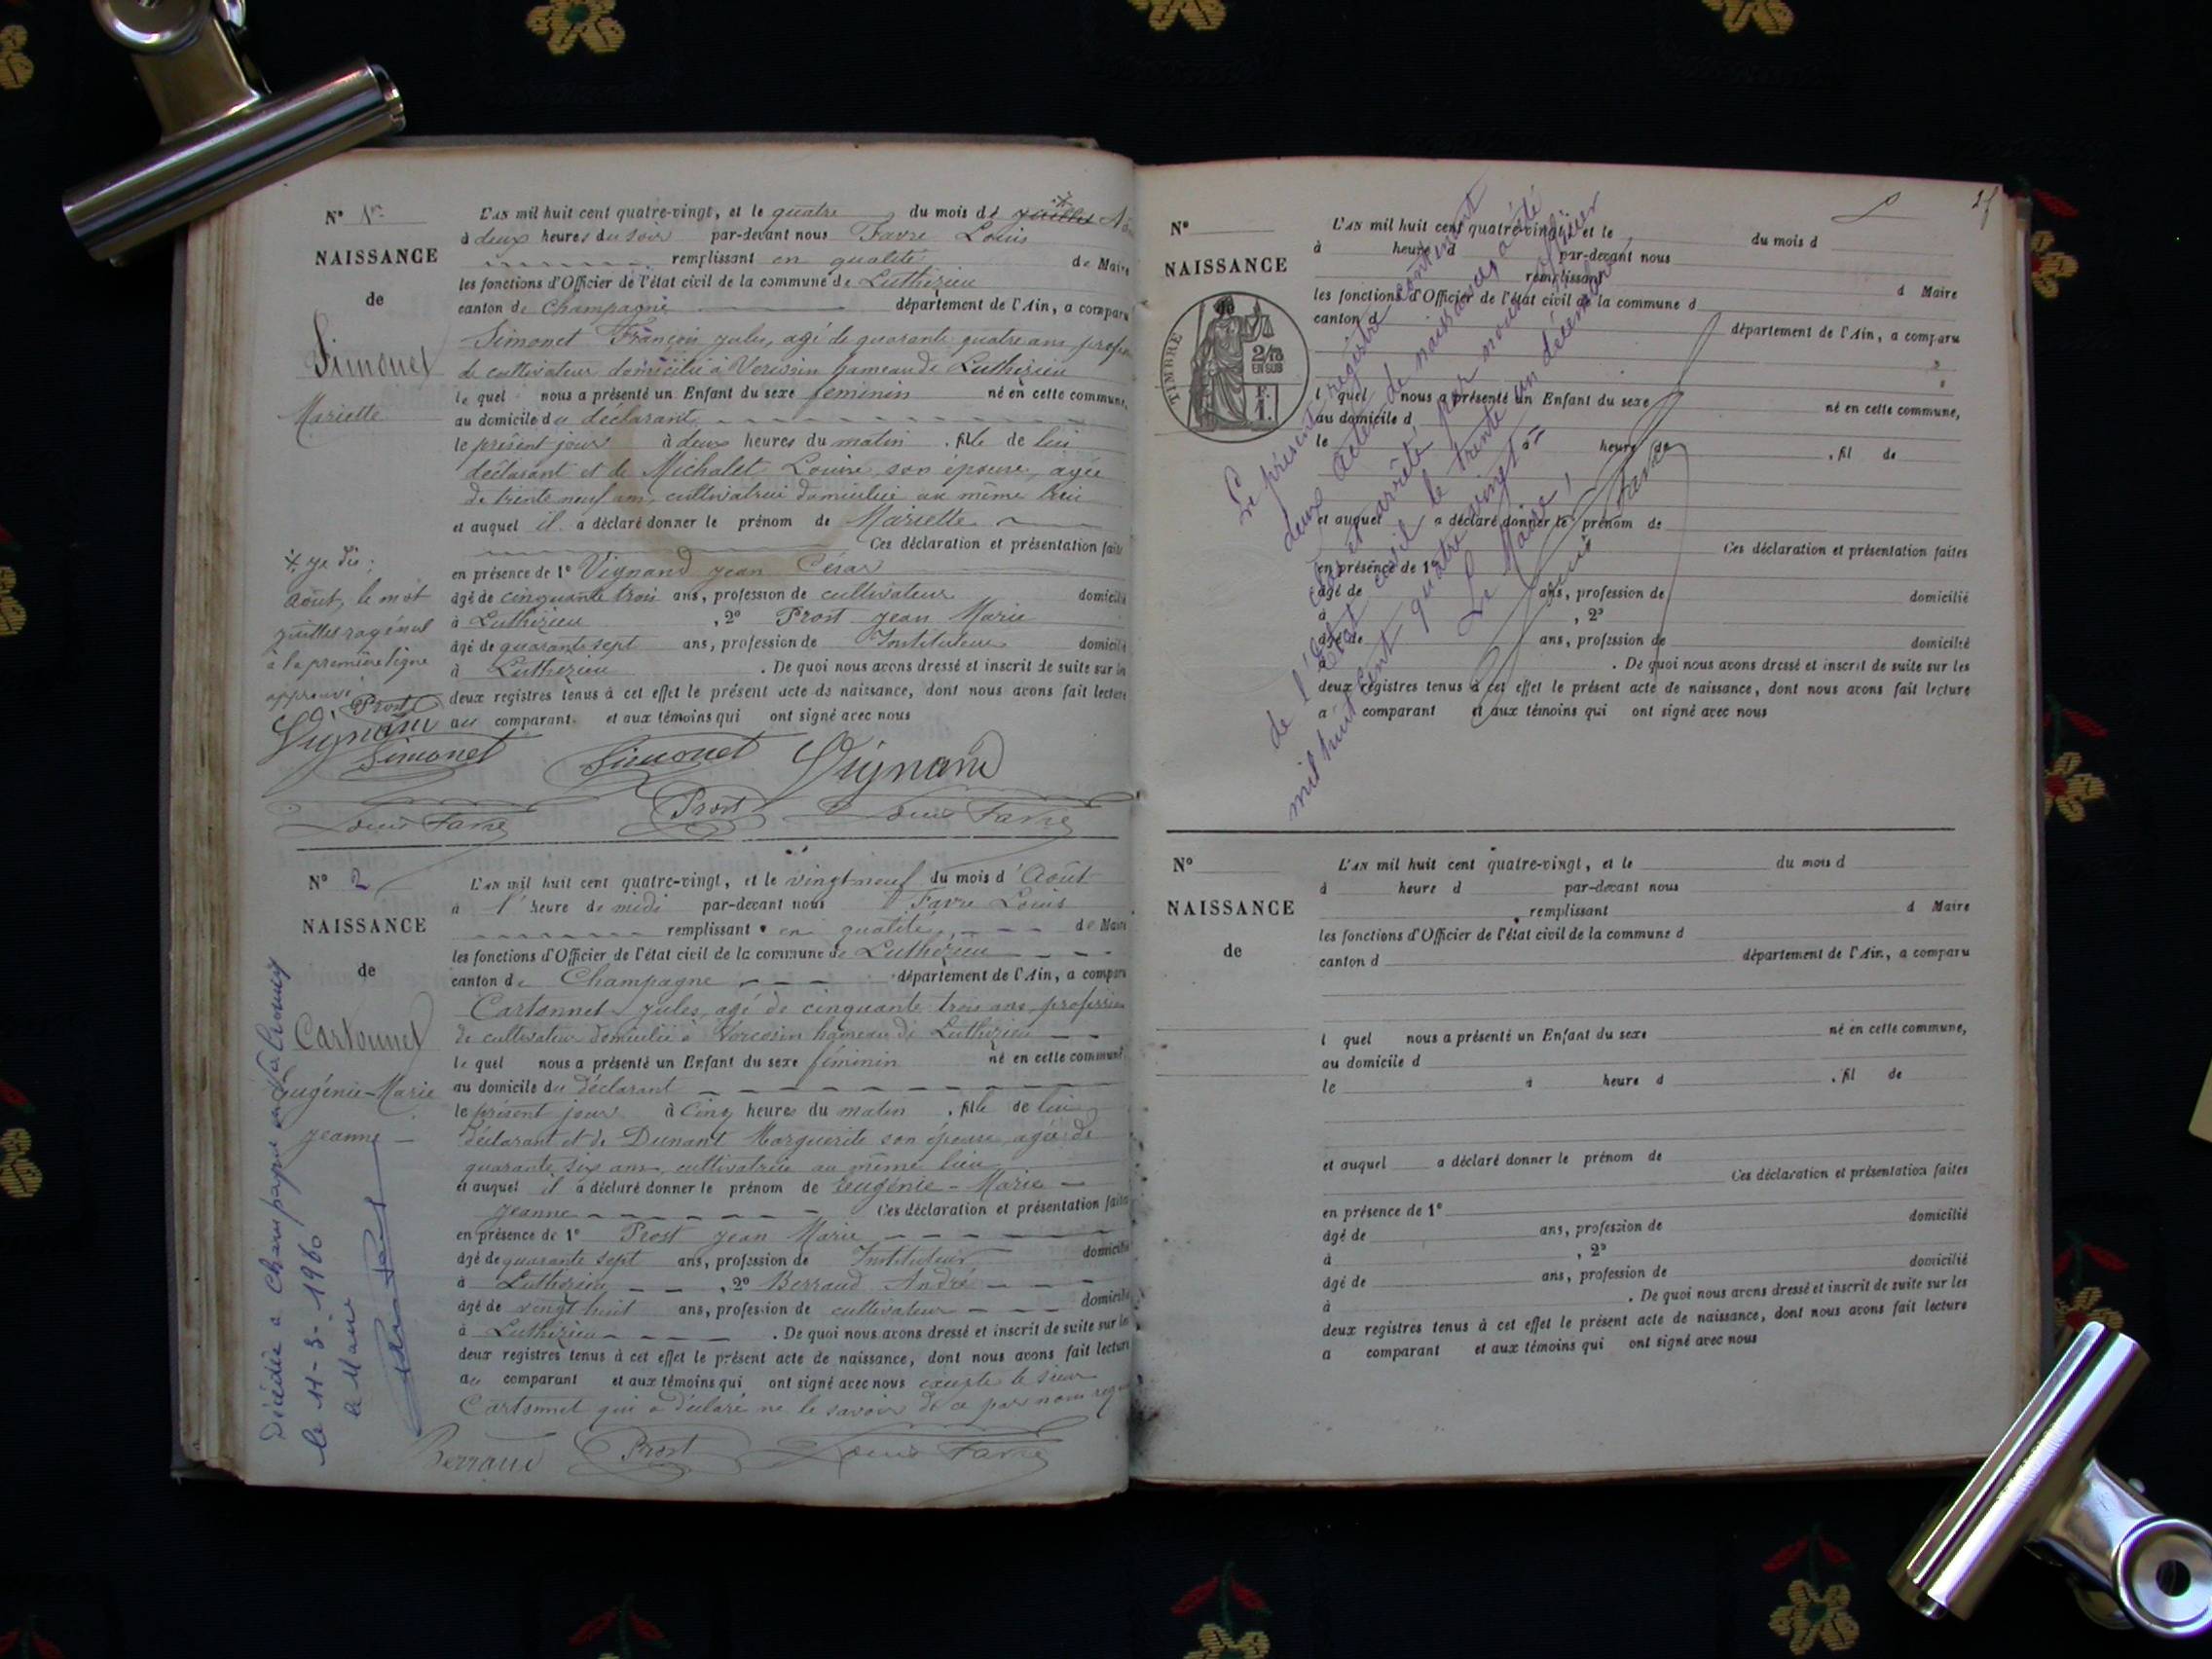 N° 1er
NAISSANCE
de
Simonet
Mariette
L'AN mil huit cent quatre-vingt, et le quatre du mois de juillet
à deux heures du soir par-devant nous Favre Louis
remplissant en qualité de Maire
les fonctions d'Officier de l'état civil de la commune de Luthézieu
canton de Champagne département de l'Ain, a comparu
Simonet François jules, agé de quarante quatre ans
de cultivateur domicilié à Vorcosin hameau de Luthézieu
le quel nous a présenté un Enfant du sexe féminin né en cette commune,
au domicile du déclarant
le présent jour à deux heures du matin , fille de lui
déclarant et de Michalet Louise son épouse, agée
de trente neuf ans, cultivatrice domiciliée au même lieu
et auquel il a déclaré donner le prénom de Mariette
Ces déclaration et présentation faites
en présence de 1° Vignand jean César
âgé de cinquante trois ans, profession de cultivateur domicilié
à Luthézieu , 2° Prost jean Marie
âgé de quarante sept ans, profession de Instituteur domicilié
à Luthézieu . De quoi nous avons dressé et inscrit de suite sur les
deux registres tenus à cet effet le présent acte de naissance, dont nous avons fait lecture
au comparant et aux témoins qui ont signé avec nous
+ je dis:
août, le mot
juillet
à la première ligne
approuvé
Prost
Vignand
Simonet Simonet Vignand
Louis Favre Prost Louis Favre
N° 2
NAISSANCE
de
Cartonnet
Eugénie-Marie
jeanne -
L'AN mil huit cent quatre-vingt, et le vingt neuf du mois d'Août
à l' heure de midi par-devant nous Favre Louis
remplissant en qualité de Maire
les fonctions d'Officier de l'état civil de la commune de Luthézieu
canton de Champagne département de l'Ain, a comparu
Cartonnet jules, agé de cinquante trois ans, profession
de cultivateur domicilié à Vorcosin hameau de Luthézieu
le quel nous a présenté un Enfant du sexe féminin né en cette commune,
au domicile du déclarant
le présent jour à cinq heures du matin , fille de lui
déclarant et de Dunant Marguerite son épouse agée de
quarante six ans, cultivatrice au même lieu
et auquel il a déclaré donner le prénom de Eugénie - Marie -
jeanne Ces déclaration et présentation faites
en présence de 1° Prost jean Marie
âgé de quarante sept ans, profession de Instituteur domicilié
à Luthézieu , 2° Berraud André
âgé de vingt huit ans, profession de cultivateur domicilié
à Luthézieu . De quoi nous avons dressé et inscrit de suite sur les
deux registres tenus à cet effet le présent acte de naissance, dont nous avons fait lecture
au comparant et aux témoins qui ont signé avec nous excepté le sieur
Cartonnet qui a déclaré ne le savoir de ce par nous requis
Berraud Prost Louis Favre
Décédée à Champagne en Valromey
le 11-3-1960
le Maire
N°
NAISSANCE
TIMBRE
2/10
EN SUS
F.
1.
L'AN mil huit cent quatre-vingt, et le du mois d
à heure d par-devant nous
remplissant d Maire
les fonctions d'Officier de l'état civil de la commune d
canton d département de l'Ain, a comparu
l quel nous a présenté un Enfant du sexe né en cette commune,
au domicile d
le à heure de , fil de
et auquel a déclaré donner le prénom de
Ces déclaration et présentation faites
en présence de 1°
âgé de ans, profession de domicilié
à , 2°
âgé de ans, profession de domicilié
à . De quoi nous avons dressé et inscrit de suite sur les
deux registres tenus à cet effet le présent acte de naissance, dont nous avons fait lecture
a comparant et aux témoins qui ont signé avec nous
Le présent registre contenant
deux actes de naissances a été
clos et arrêté par nous officier
de l'état civil le trente un décembre
mil huit cent quatre vingt
Le Maire!
Louis Favre
N°
NAISSANCE
de
L'AN mil huit cent quatre-vingt, et le du mois d
à heure d par-devant nous
remplissant d Maire
les fonctions d'Officier de l'état civil de la commune d
canton d département de l'Ain, a comparu
l quel nous a présenté un Enfant du sexe né en cette commune,
au domicile d
le à heure d , fil de
et auquel a déclaré donner le prénom de
Ces déclaration et présentation faites
en présence de 1°
âgé de ans, profession de domicilié
à , 2°
âgé de ans, profession de domicilié
à . De quoi nous avons dressé et inscrit de suite sur les
deux registres tenus à cet effet le présent acte de naissance, dont nous avons fait lecture
a comparant et aux témoins qui ont signé avec nous